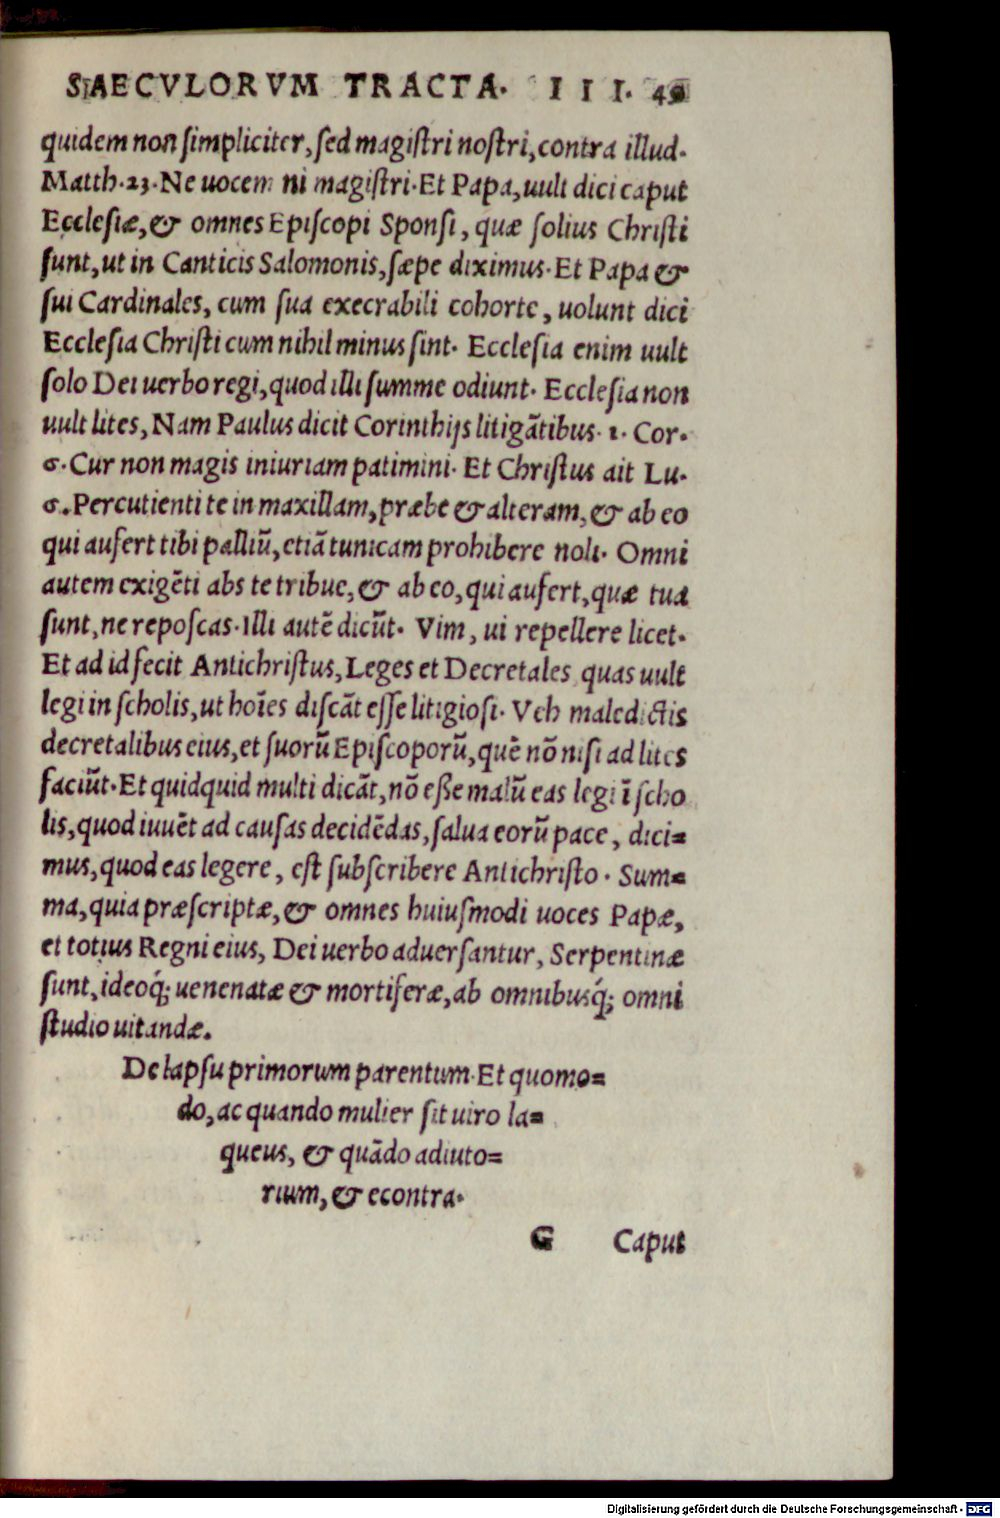 SAECVLORVM TRACTA. III. 49
quidem non ſimpliciter, ſed magiſtri noſtri, contra illud.
Matth.23. Ne uocemini magiſtri. Et Papa, uult dici caput
Eccleſiæ, & omnes Epiſcopi Sponſi, quæ ſolius Chriſti
ſunt, ut in Canticis Salomonis, ſæpe diximus. Et Papa &
ſui Cardinales, cum ſua execrabili cohorte, uolunt dici
Eccleſia Chriſti cum nihil minus ſint. Eccleſia enim uult
ſolo Dei uerbo regi, quod illi ſumme odiunt. Eccleſia non
uult lites, Nam Paulus dicit Corinthijs litigātibus. 1. Cor.
6. Cur non magis iniuriam patimini. Et Chriſtus ait Lu.
6. Percutienti te in maxillam, præbe & alteram, & ab eo
qui aufert tibi palliū, etiā tunicam prohibere noli. Omni
autem exigēti abs te tribue, & ab eo, qui aufert, quæ tua
ſunt, ne repoſcas. Illi autē dicūt. Vim, ui repellere licet.
Et ad id fecit Antichriſtus, Leges et Decretales quas uult
legi in ſcholis, ut hoīes diſcāt eſſe litigioſi. Veh maledictis
decretalibus eius, et ſuorū Epiſcoporū, quē nō niſi ad lites
faciūt. Et quidquid multi dicāt, nō eſſe malū eas legi ī ſcho
lis, quod iuuēt ad cauſas decidēdas, ſalua eorū pace, dici=
mus, quod eas legere, eſt ſubſcribere Antichriſto. Sum=
ma, quia præſcriptæ, & omnes huiuſmodi uoces Papæ,
et totius Regni eius, Dei uerbo aduerſantur, Serpentinæ
ſunt, ideoq́; uenenatæ & mortiferæ, ab omnibusq́; omni
ſtudio uitandæ.
De lapſu primorum parentum. Et quomo=
do, ac quando mulier ſit uiro la=
queus, & quādo adiuto=
rium, & econtra.
G Caput
Digitalisierung gefördert durch die Deutsche Forschungsgemeinschaft - DFG